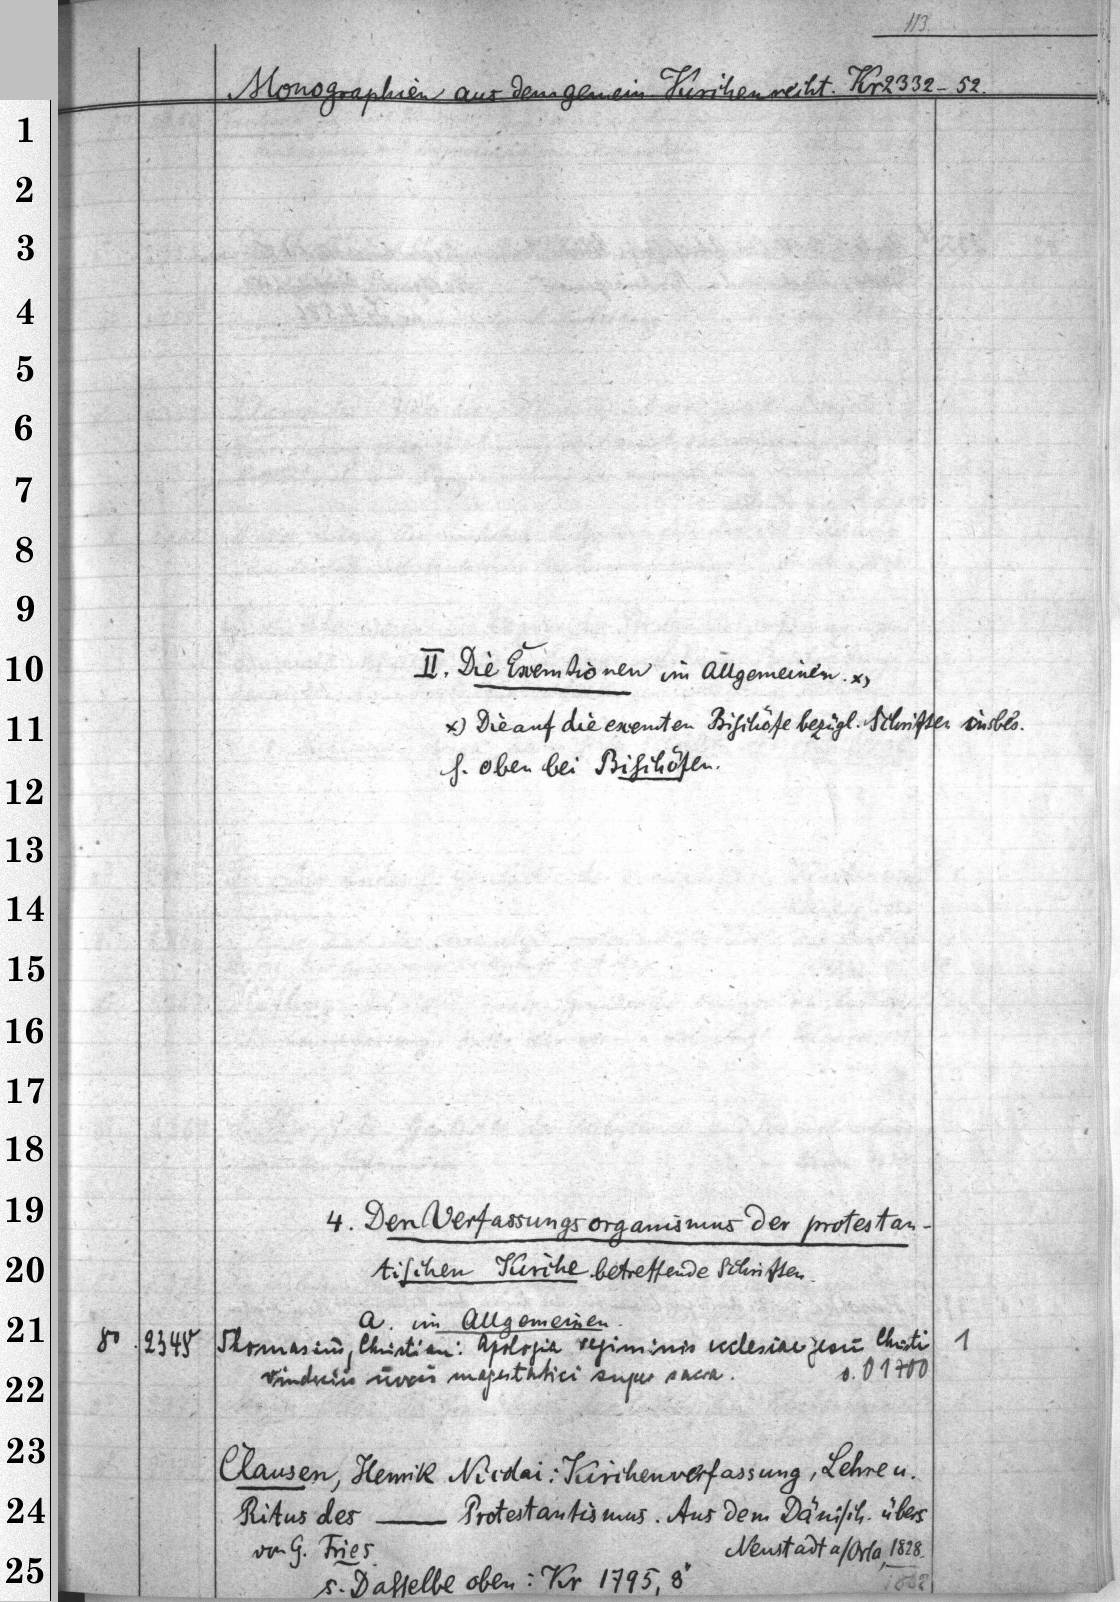 113.
Monographien aus dem gemein. Kirchenrecht. Kr2332-52.
1
2
3
4
5
6
7
8
9
10
II. Die Exemtionen im Allgemeinen. x)
11
x) Die auf die exemten Bischöfe bezügl. Schriften insbes.
s. oben bei Bischöfen.
12
13
14
15
16
17
18
19
4. Den Verfassungsorganismus der protestan-
20
tischen Kirche betreffende Schriften.
21
a. im Allgemeinen.
8° 2345 Thomasius, Christian: Apologia regiminis ecclesiae Jesu Christi 1
22
juris majestatici super sacra. s. O 1700
23
Clausen, Henrik Nicolai: Kirchenverfassung, Lehre u.
24
Ritus des —— Protestantismus. Aus dem Dänisch. übers
von G. Fries. Neustadt a/Orla, 1828.
25
s. Dasselbe oben: Kr 1795, 8°